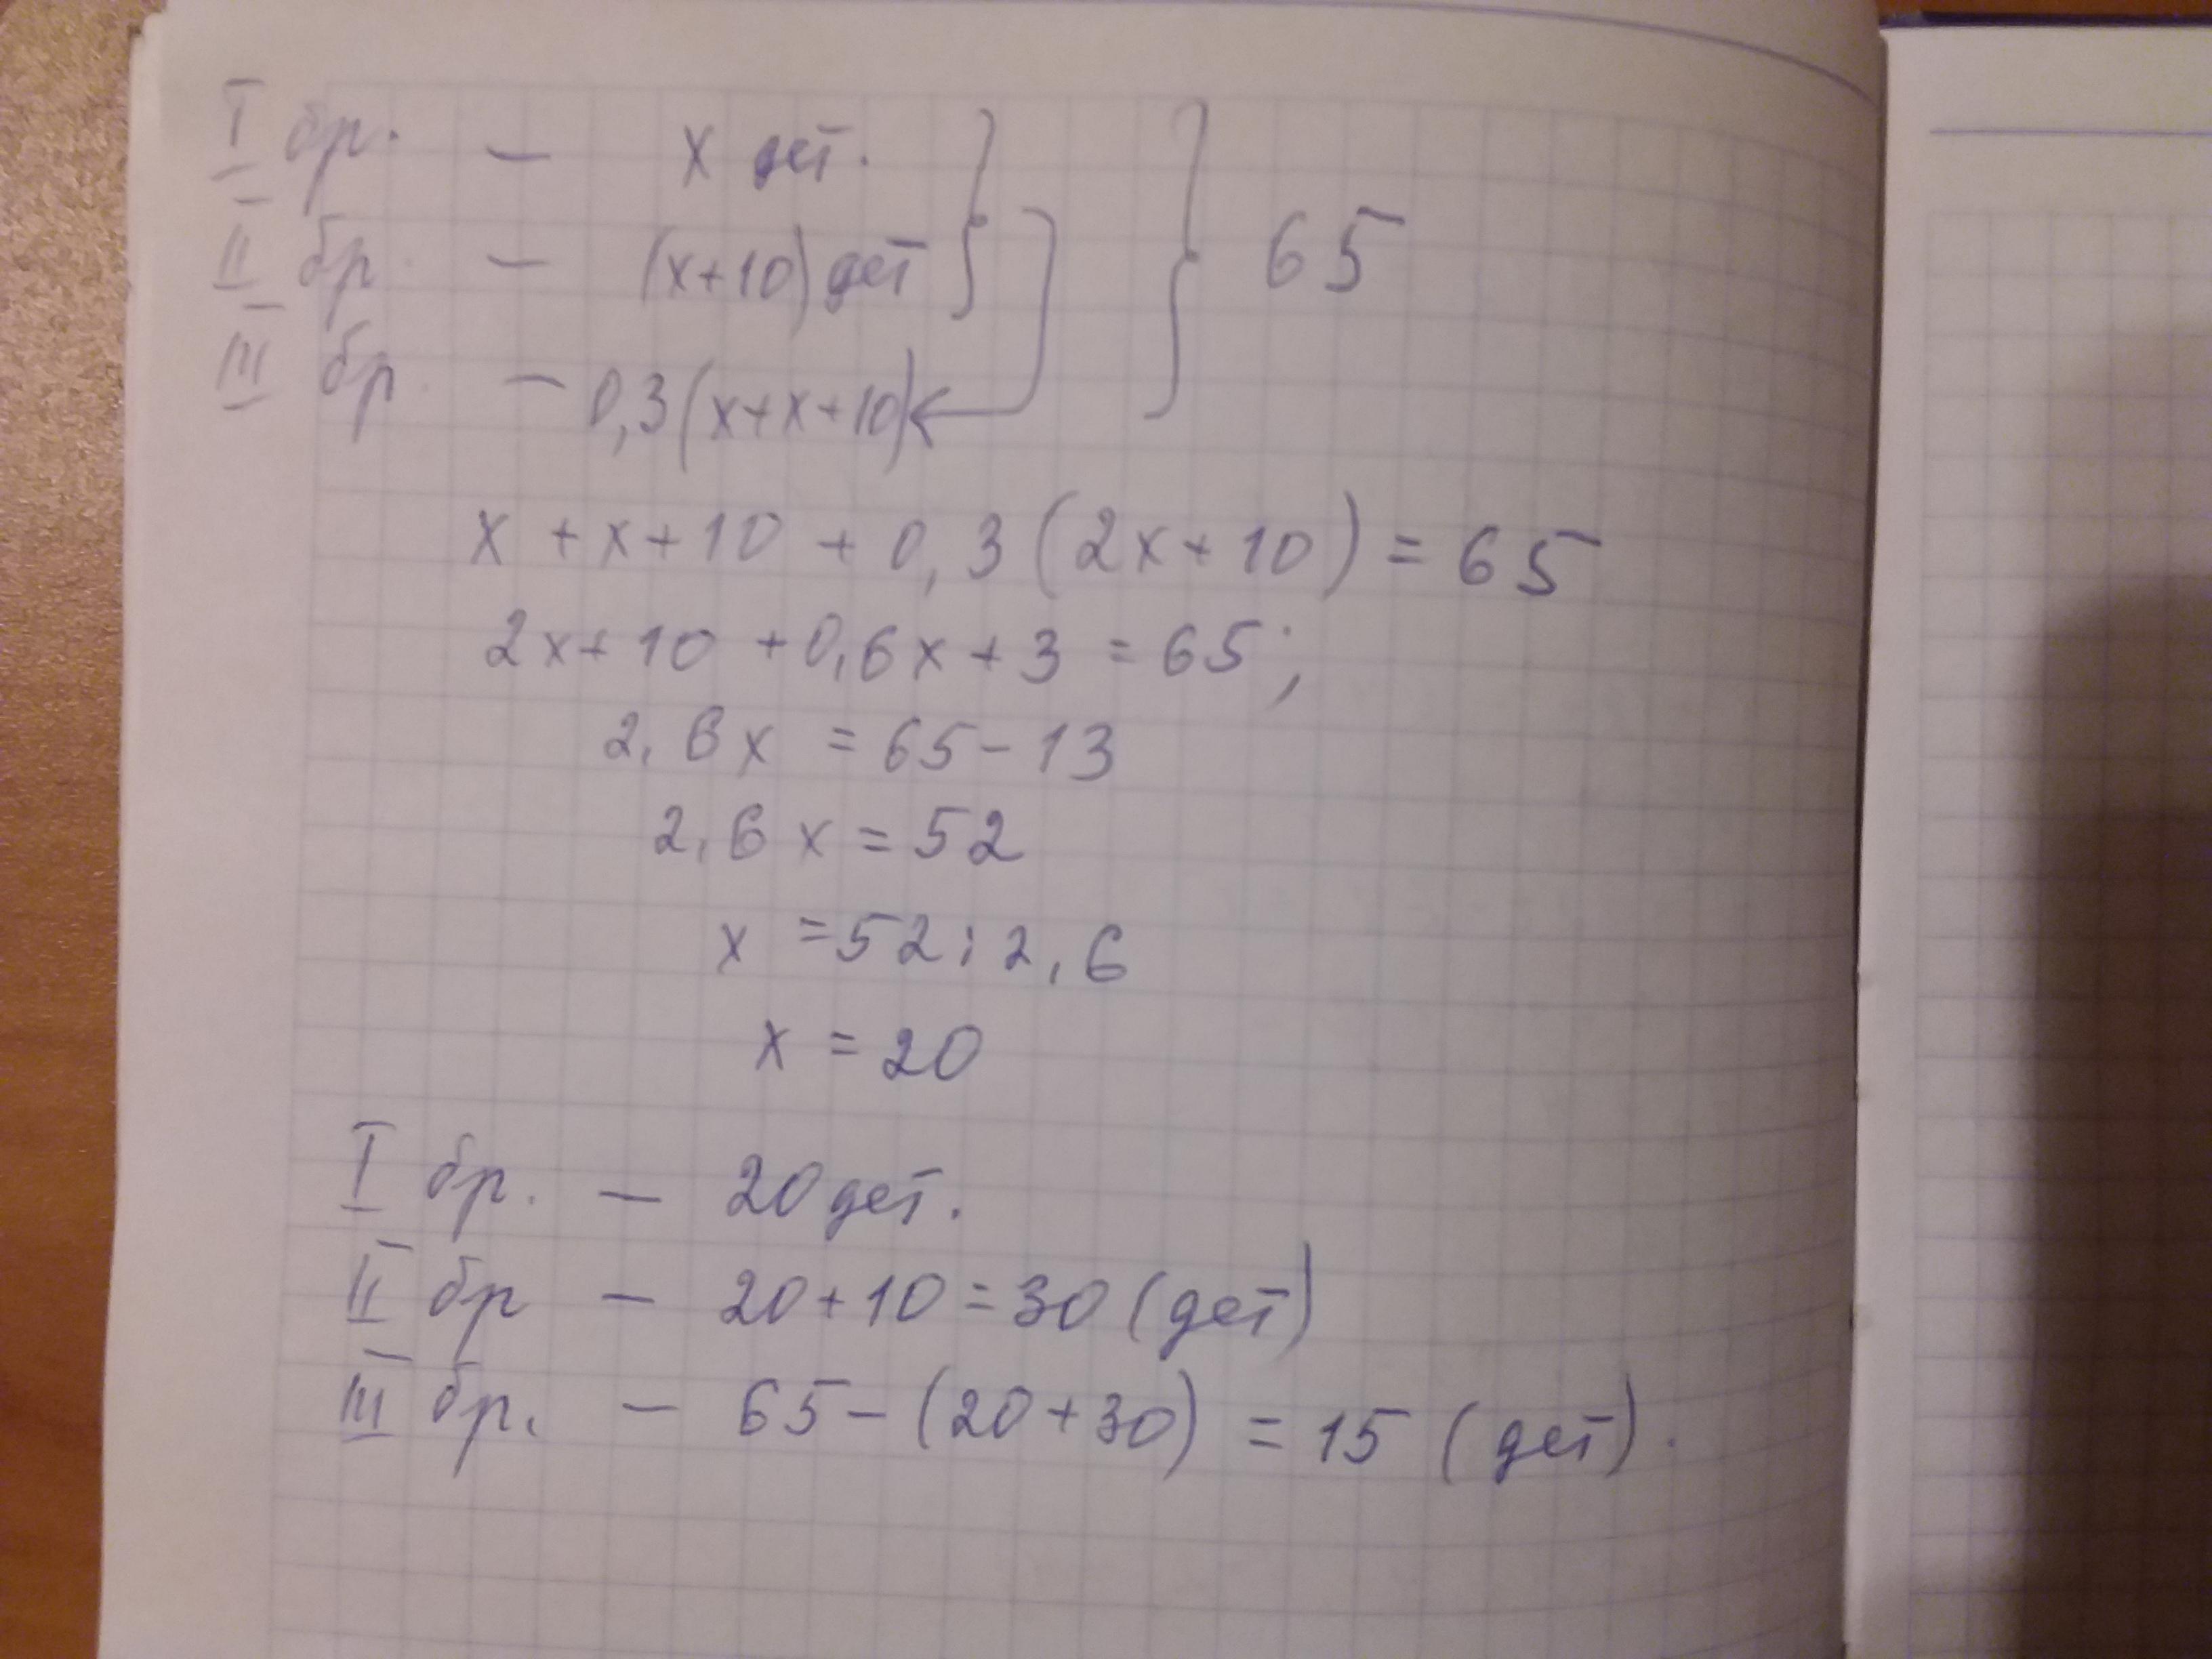 I бр. - x дет.
II бр. - (x+10) дет
65
III бр. - 0,3(x+x+10)
x + x + 10 + 0,3(2x+10) = 65
2x+10 +0,6x+3 = 65;
2,6x = 65-13
2,6x = 52
x = 52:2,6
x = 20
I бр. - 20 дет.
II бр - 20+10=30 (дет)
III бр. - 65-(20+30) = 15 (дет).